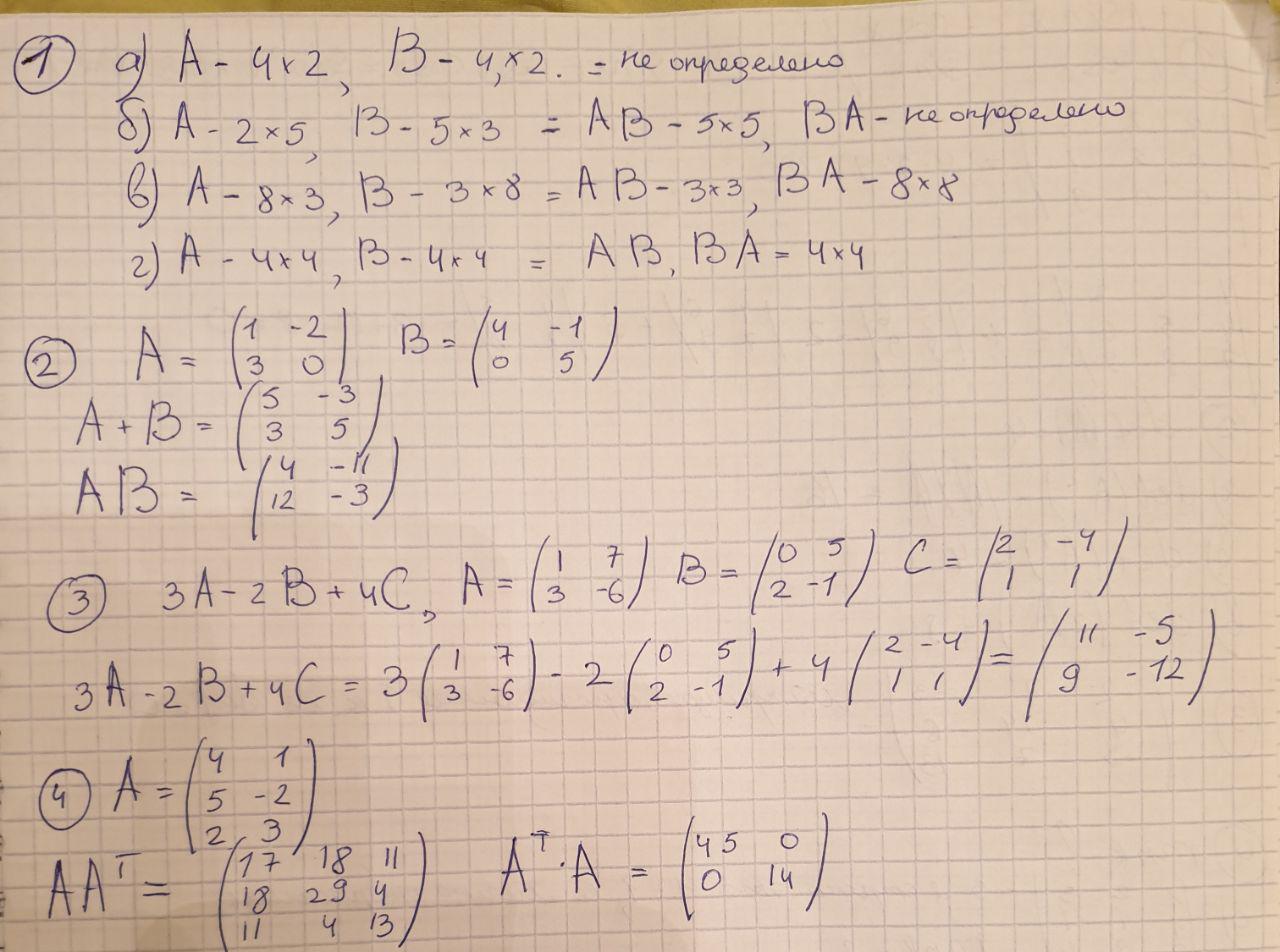 1 а) A - 4×2, B - 4,×2. = не определено
б) A - 2×5, B - 5×3 = AB - 5×5, BA - не определено
в) A - 8×3, B - 3×8 = AB - 3×3, BA - 8×8
г) A - 4×4, B - 4×4 = AB, BA = 4×4
2 A = (1 -2 B = (4 -1)
3 0) 0 5)
A + B = (5 -3
3 5)
AB = (4 -11
12 -3)
3 3A - 2B + 4C, A = (1 7 B = (0 5 C = (2 -4
3 -6) 2 -1) 1 1)
3A - 2B + 4C = 3(1 7 - 2(0 5 + 4(2 -4 = (11 -5
3 -6) 2 -1) 1 1) 9 -12)
4 A = (4 1
5 -2
2 3)
AAᵀ = (17 18 11 Aᵀ·A = (45 0
18 29 4 0 14)
11 4 13)